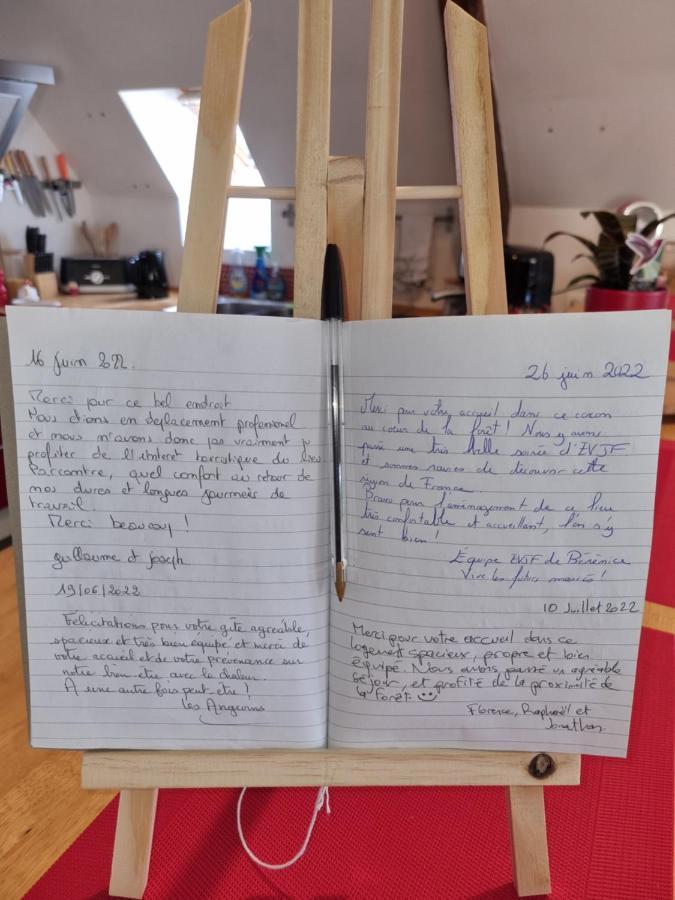 16 juin 2022.
Merci pour ce bel endroit
Nous étions en déplacement professionnel
et nous n'avons donc pas vraiment pu
profiter de l'intérêt touristique du lieu
Par contre, quel confort au retour de
nos dures et longues journées de
travail.
Merci beaucoup !
Guillaume et Joseph
19/06/2022
Félicitations pour votre gîte agréable,
spacieux et très bien équipé et merci de
votre accueil et de votre prévenance sur
notre bien être avec la chaleur.
A une autre fois peut être !
Les Angevins
26 juin 2022
Merci pour votre accueil dans ce cocon
au cœur de la forêt ! Nous y avons
passé une très belle soirée d'EVJF
et sommes ravies de découvrir cette
région de France.
Bravo pour l'aménagement de ce lieu
très confortable et accueillant, l'on s'y
sent bien !
Équipe EVJF de Bérénice
Vive les futurs mariés !
10 Juillet 2022
Merci pour votre accueil dans ce
logement spacieux, propre et bien
équipé. Nous avons passé un agréable
séjour, et profité de la proximité de
la forêt. 😊
Florence, Raphaël et
Jonathan.